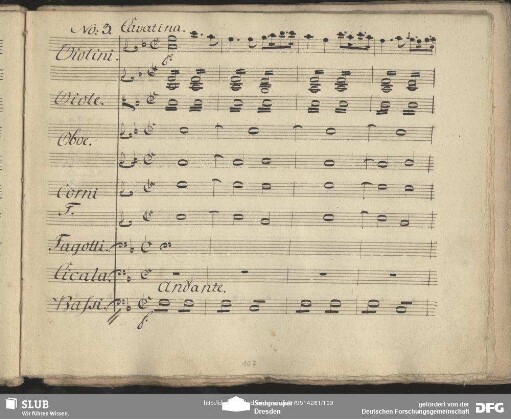 No: 3. Cavatina.
Violini.
Viole.
Oboe.
Corni
F.
Fagotti.
Cicala.
Andante.
Bassi.
107
SLUB
Wir führen Wissen.
Dresden
gefördert von der
Deutschen Forschungsgemeinschaft
DFG